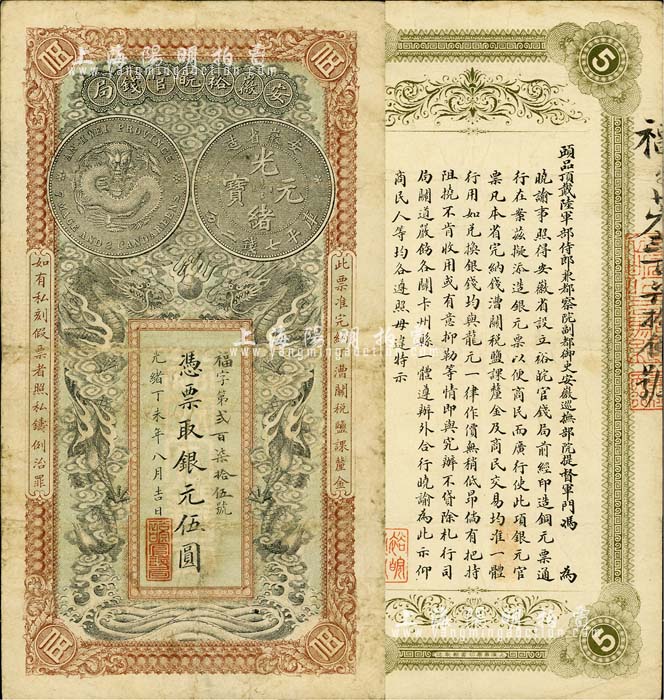 上海陽明拍賣
www.yangmingauction.com
伍
伍
安徽裕皖官錢局
AN-HUEI PROVINCE
7 MACE AND 2 CANDAREENS
安徽省造
光緒元寶
庫平七錢二分
此票准完納錢漕關稅鹽課釐金
如有私刻假票者照私鑄例治罪
福字第貳百柒拾伍號
憑票取銀元伍圓
光緒丁未年八月吉日
伍
伍
5
頭品頂戴陸軍部侍郎兼都察院副都御史安徽巡撫部院提督軍門馮 為
曉諭事照得安徽省設立裕皖官錢局前經印造銅元票通
行在案茲擬添造銀元票以便商民而廣行使此項銀元官
票凡本省完納錢漕關稅鹽課釐金及商民交易均准一體
行用如兌換銀錢均與龍元一律作價無稍低昂倘有把持
阻撓不肯收用或有意抑勒等情即與究辦不貸除札行司
局關道嚴飭各關卡州縣一體遵辦外合行曉諭為此示仰
商民人等均各遵照毋違特示
裕皖
5
上海陽明拍賣
www.yangmingauction.com
上海陽明拍賣
www.yangmingauction.com